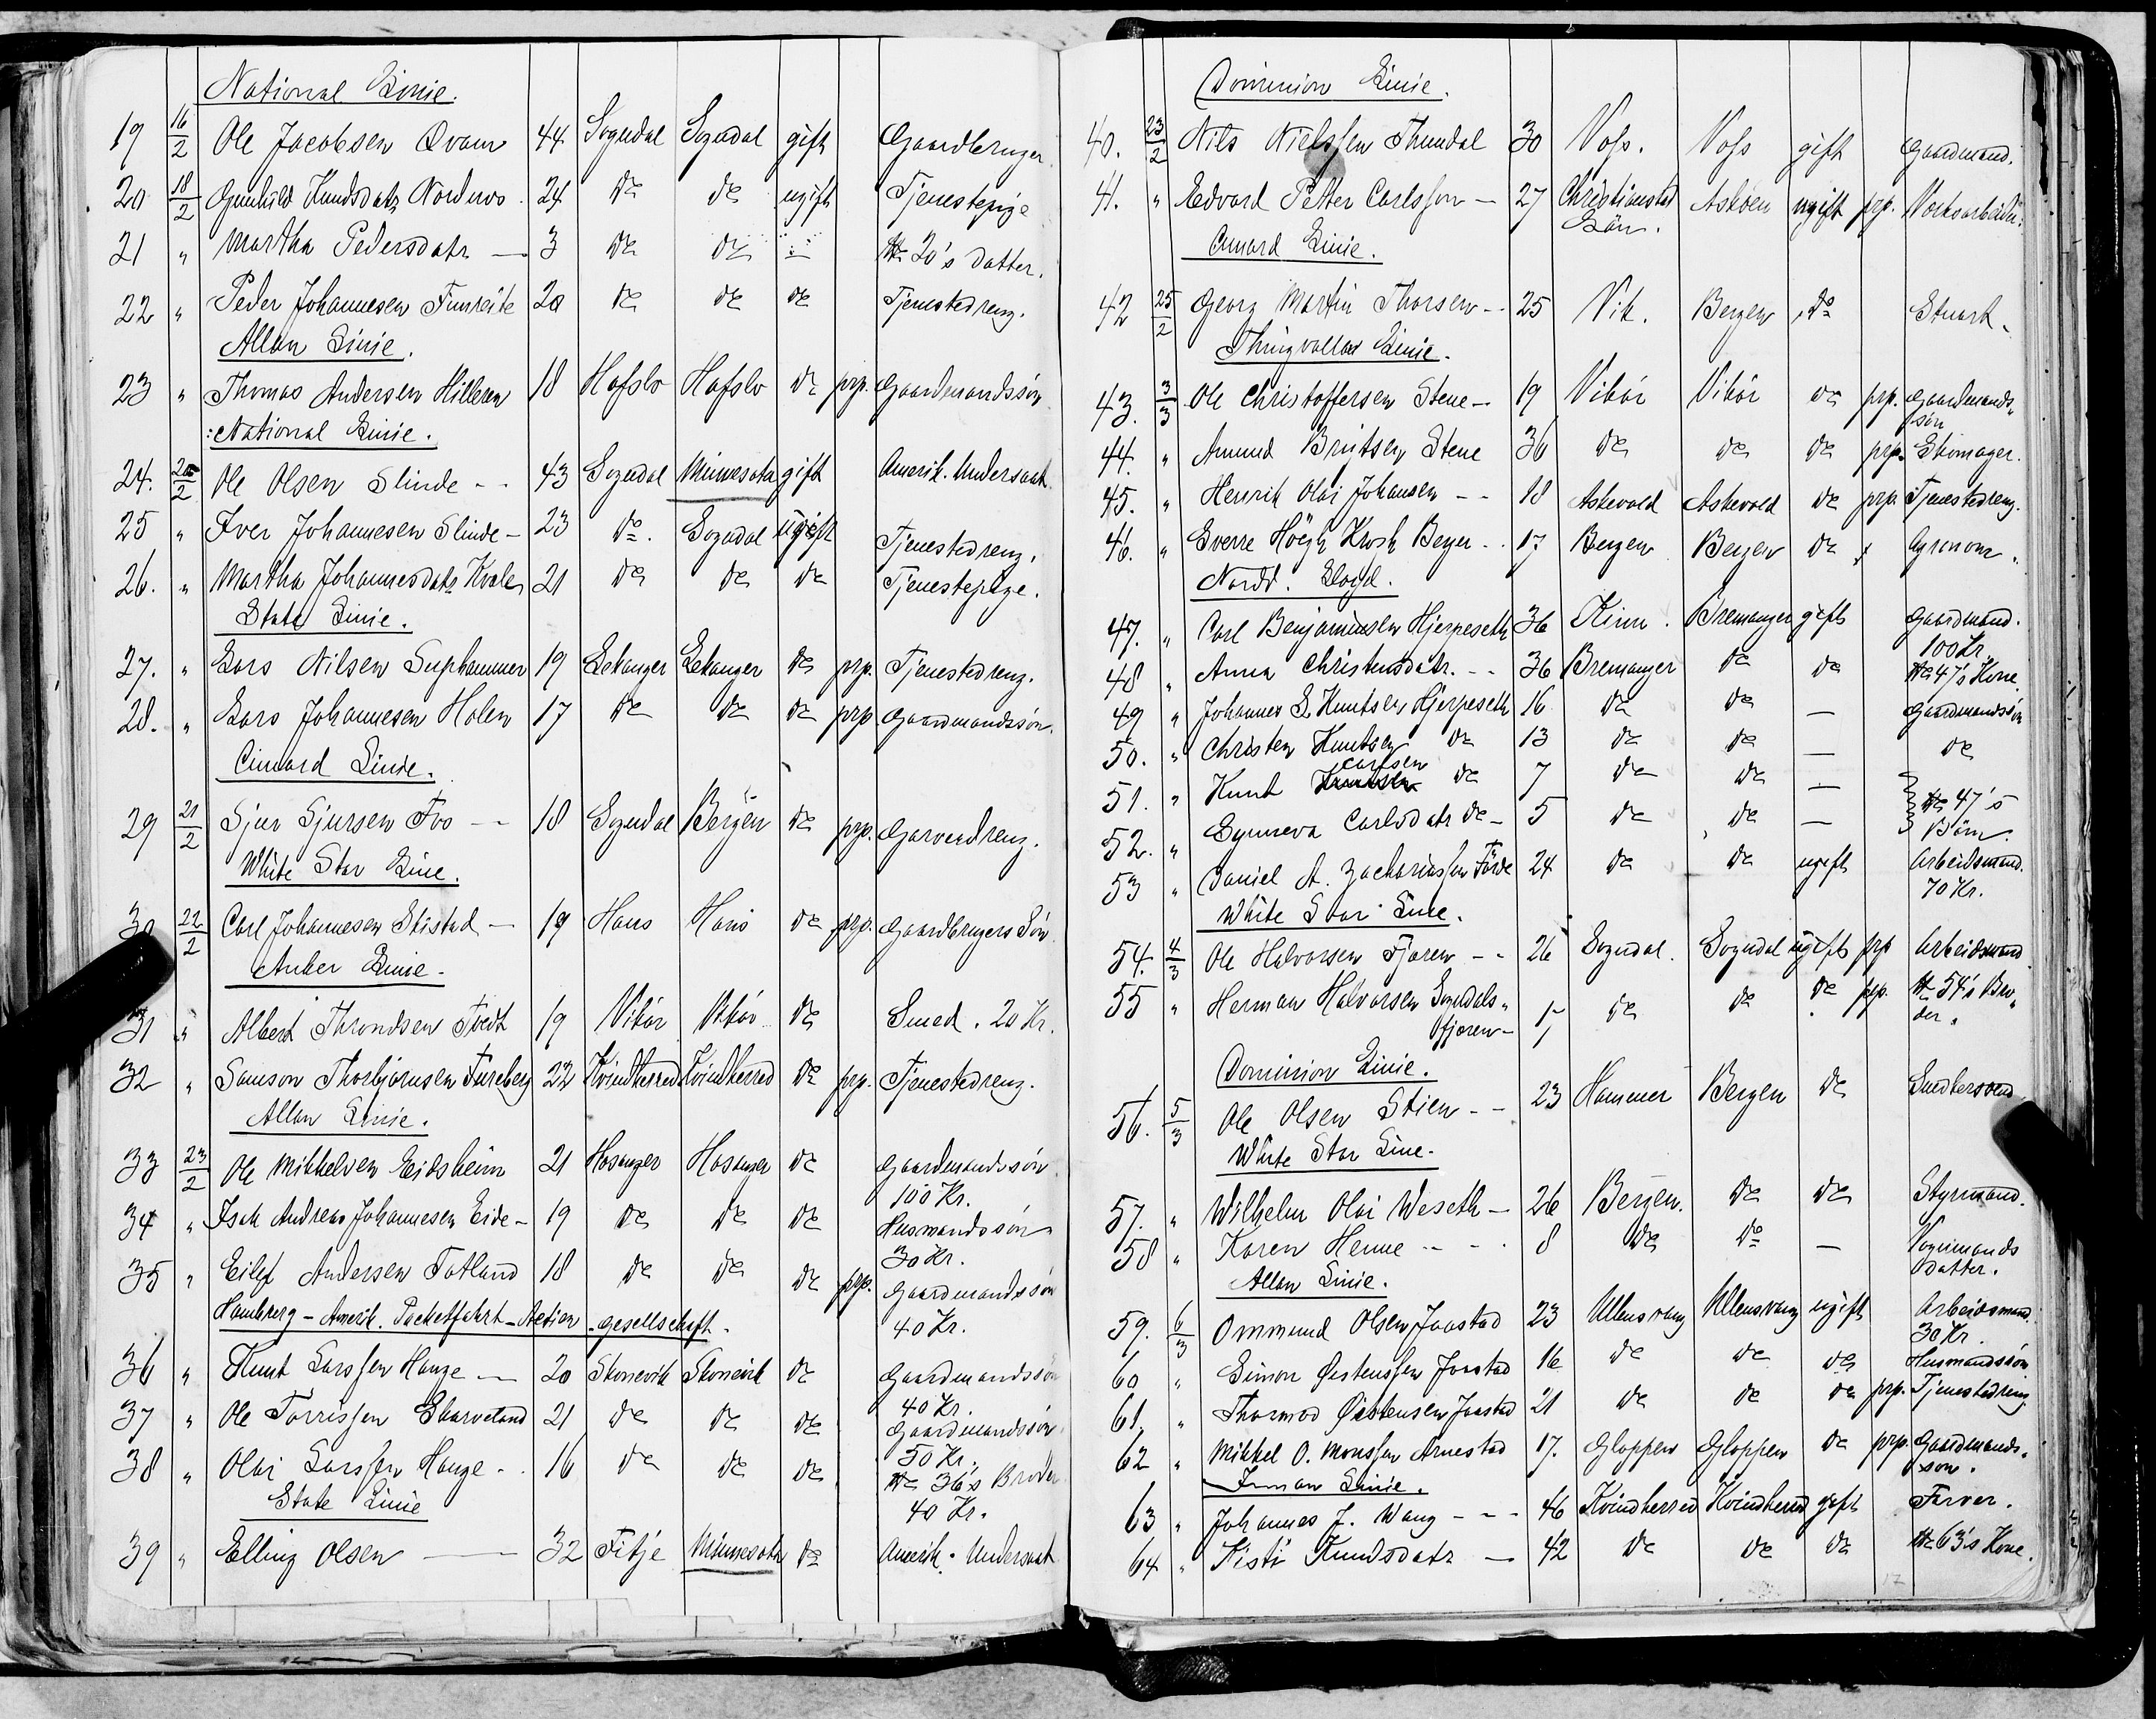 National Linie.
19 16/2 Ole Jacobsen Qvam 44 Sogndal Sogndal gift Gaardbruger.
20 18/2 Gunhild Knudsdatr Nordnæs 24 do do ugift Tjenestepige
21 " Martha Pedersdatr — 3 do do — No 20's datter.
22 " Peder Johannesen Fimreite 20 do do do Tjenestedreng.
Allan Linie.
23 " Thomas Andersen Hilleren 18 Hafslo Hafslo do prp. Gaardmandssön
National Linie.
24. 20/2 Ole Olsen Slinde -- 43 Sogndal Minnesota gift Amerik. Undersaat
25 " Iver Johannesen Slinde - 23 do. Sogndal ugift Tjenestedreng.
26. " Martha Johannesdatr Kvale 21 do do do Tjenestepige.
State Linie.
27. " Lars Nilsen Suphammer 19 Lekanger Lekanger do prp. Tjenestedreng.
28. " Lars Johannesen Holen 17 do do do prp Gaardmandssön.
Cunard Linie.
29 21/2 Sjur Sjursen Fos -- 18 Sogndal Bergen do prp. Garverdreng.
White Star Line.
30 22/2 Carl Johannesen Skistad — 19 Haus Haus do prp. Gaardbrugers Sön
Anker Linie.
31 " Albert Throndsen Tvedt 19 Vikör Vikör do Smed. 20 Kr.
32 " Samson Thorbjörnsen Fureberg 22 Kvindherred Kvindherred do prp. Tjenestedreng.
Allan Linie.
33 23/2 Ole Mikkelsen Eidsheim 21 Hosanger Hosanger do Gaardmandssön
100 Kr.
34 " Isak Andreas Johannesen Eide - 19 do do do Husmandssön
30 Kr.
35 " Eilef Andersen Totland 18 do do do prp. Gaardmandssön
40 Kr.
Hamburg - Amerik. Packetfahrt - Actien - gesellschaft.
36 " Knut Larssen Hauge — 20 Skonevik Skonevik do Gaardmandssön
40 Kr.
37 " Ole Torrissen Skarveland 21 do do do Gaardmandssön
50 Kr.
38 " Olai Larssen Hauge -. 16 do do do No 36's Broder
40 Kr.
State Linie
39 " Elling Olsen — 32 Fitje Minnesota do Amerik. Undersaat
Dominion Linie.
40. 23/2 Nils Nielssen Thundal 30 Voss. Voss gift Gaardmand.
41. " Edvard Petter Carlsson — 27 Christianstad Län. Askøen ugift prp. Værksarbeider.
Cunard Linie.
42 25/2 Georg Martin Thorsen -- 25 Vik. Bergen do Stuart.
Thingvalla Linie.
43. 3/3 Ole Christoffersen Stene — 19 Vikör Vikör do prp. Gaardmands-
sön
44. " Amund Brigtsen Stene 36 do do do prp. Skomager.
45. " Henrik Olai Johansen -- 18 Askevold Askevold do prp. Tjenestedreng.
46. " Sverre Höegh Krosh Beyer -. 17 Bergen Bergen do Agronom.
Nordd. Lloyd.
47. " Carl Benjaminsen Hjerpeseth 36 Kinn. Bremanger gift Gaardmand.
100 Kr.
48 " Anna Christensdatr. -- 36 Bremanger do do No 47's Kone.
49 " Johannes S. Knutsen Hjerpeseth 16 do do — Gaardmandssön
50. " Christen Knutsen do 13 do do — do
51. " Knut Carlsen do 7 do do — No 47's
52. " Synneva Carlsdatr do - 5 do do — Börn.
53 " Daniel A. Zachariassen Förde 24 do do ugift Arbeidsmand.
70 Kr.
White Star Line.
54. 4/3 Ole Halvorsen Fjæren -- 26 Sogndal. Sogndal ugift prp Arbeidsmand
55 " Herman Halvorsen Sogndals-
fjæren - 17 do do do prp. No 54's Bro-
der.
Dominion Linie.
56. 5/3 Ole Olsen Stien -- 23 Hammer Bergen do Snedkersvend
White Star Line.
57. " Wilhelm Olai Weseth — 26 Bergen. do do Styrmand.
58 " Karen Henne -- - 8 do do — Vognmands
Datter.
Allan Linie.
59. 6/3 Ommund Olsen Jaastad 23 Ullensvang Ullensvang ugift Arbeidsmand.
30 Kr.
60 " Simon Østenssen Jaastad 16 do do do Husmandssön
61. " Thormod Østensen Jaastad 21 do do do prp. Tjenestedreng
62 " Mikkel O. Monssen Arnestad 17. Gloppen Gloppen do prp. Gaardmands-
sön.
Inman Linie.
63 " Johannes J. Wang --- 46 Kvindherred Kvindherred gift Farver.
64 " Kisti Knudsdatr — 42 do do do No 63's Kone.